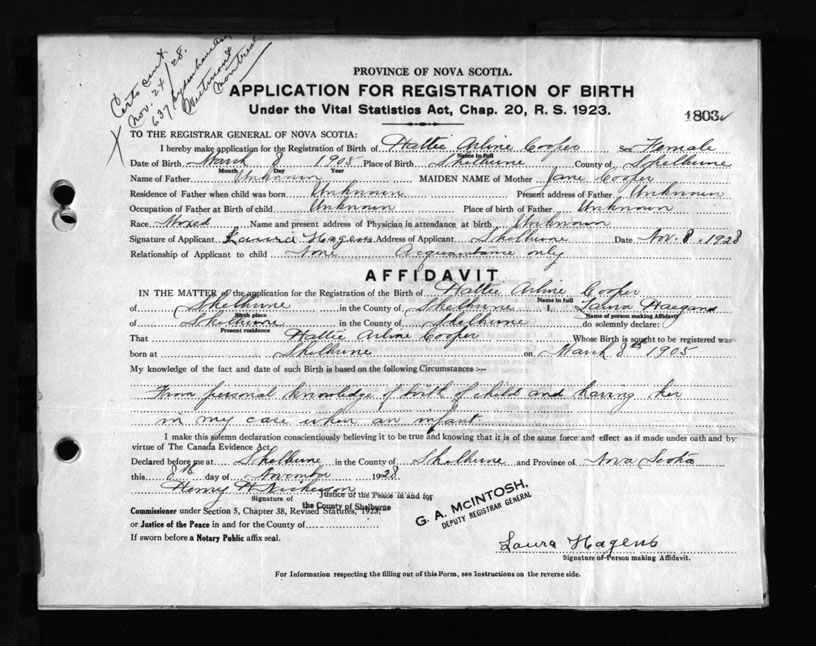 Certs sent
Nov. 24/28.
637
Westmount
Montreal
X
PROVINCE OF NOVA SCOTIA.
APPLICATION FOR REGISTRATION OF BIRTH
Under the Vital Statistics Act, Chap. 20, R. S. 1923.
1803
TO THE REGISTRAR GENERAL OF NOVA SCOTIA:
I hereby make application for the Registration of Birth of Hattie Arline Cooper Sex Female
Name in full
Date of Birth March 8 1905 Place of Birth Shelburne County of Shelburne
Month Day Year
Name of Father Unknown MAIDEN NAME of Mother Jane Cooper
Residence of Father when child was born Unknown Present address of Father Unknown
Occupation of Father at Birth of child Unknown Place of birth of Father Unknown
Race Mixed Name and present address of Physician in attendance at birth Unknown
Signature of Applicant Laura Hagens Address of Applicant Shelburne Date Nov. 8, 1928
Relationship of Applicant to child None Acquaintance only
AFFIDAVIT
IN THE MATTER of the application for the Registration of the Birth of Hattie Arline Cooper
Name in full
of Shelburne in the County of Shelburne I, Laura Haegans
Birth place Name of person making Affidavit
of Shelburne in the County of Shelburne do solemnly declare:
Present residence
That Hattie Arline Cooper Whose Birth is sought to be registered was
born at Shelburne on March 8th 1905
My knowledge of the fact and date of such Birth is based on the following Circumstances :—
From personal knowledge of birth of child and having her
in my care when an infant
I make this solemn declaration conscientiously believing it to be true and knowing that it is of the same force and effect as if made under oath and by
virtue of The Canada Evidence Act.
Declared before me at Shelburne in the County of Shelburne and Province of Nova Scotia
this 8th day of November 1928
Henry H Nickerson
Signature of Justice of the Peace in and for
the County of Shelburne
Commissioner under Section 5, Chapter 38, Revised Statutes, 1923,
or Justice of the Peace in and for the County of
If sworn before a Notary Public affix seal.
G. A. McINTOSH,
DEPUTY REGISTRAR GENERAL
Laura Hagens
Signature of Person making Affidavit.
For Information respecting the filling out of this Form, see Instructions on the reverse side.